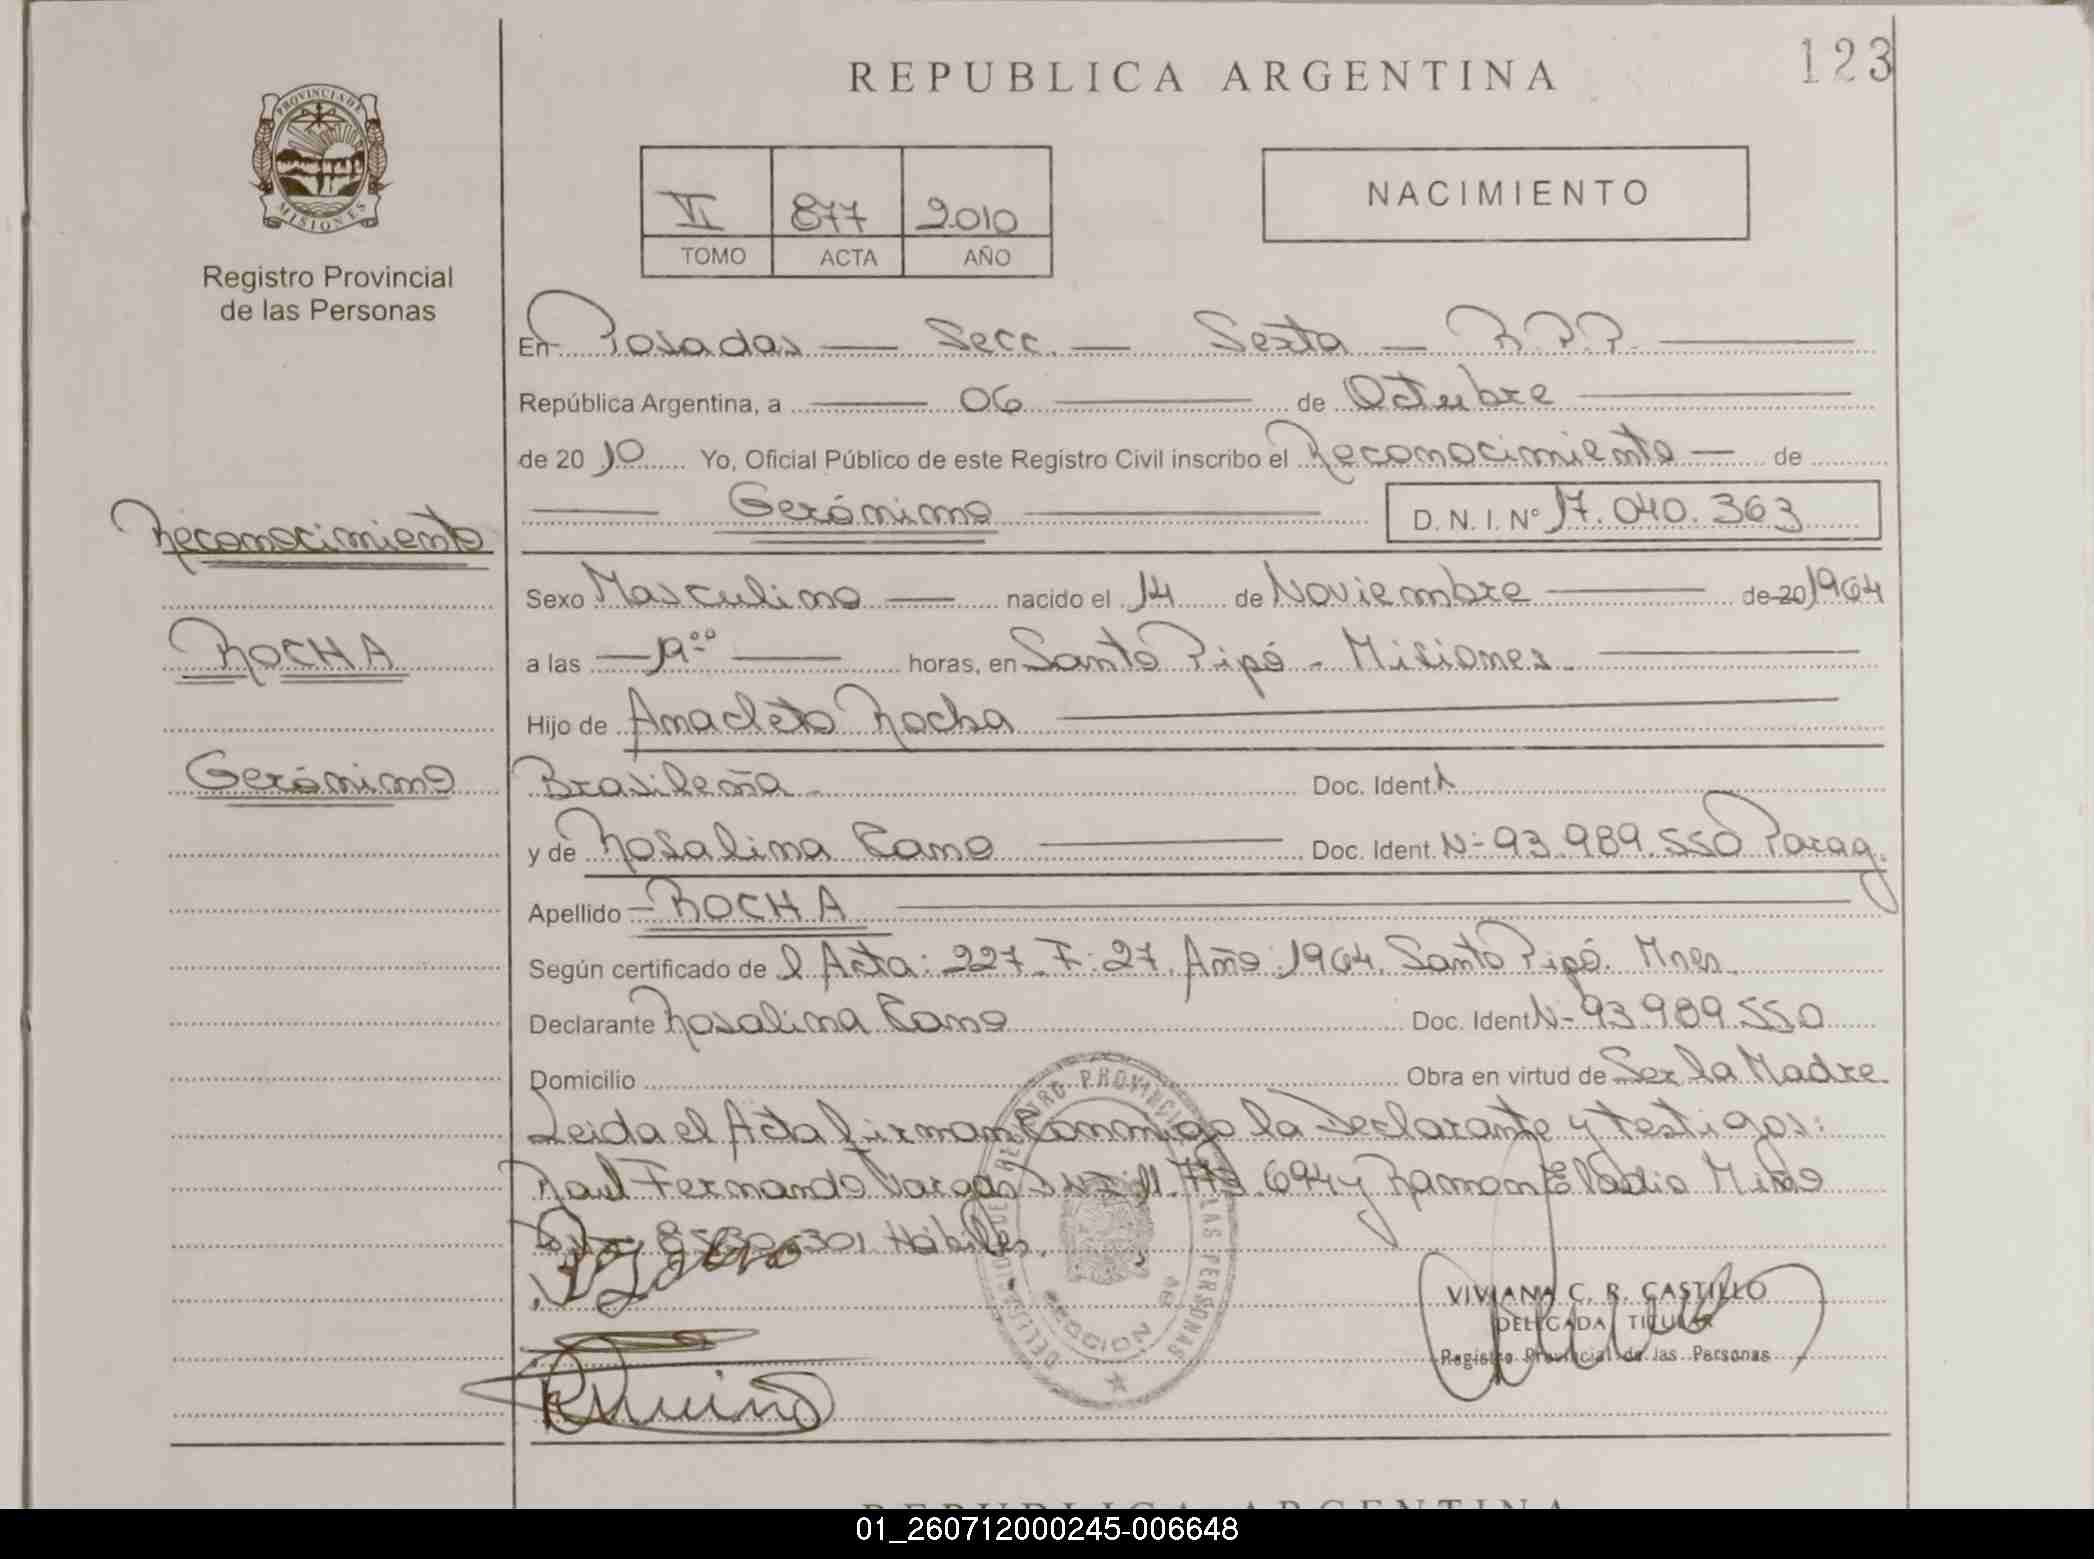 123
REPUBLICA ARGENTINA
PROVINCIA DE
MISIONES
Registro Provincial
de las Personas
VI 877 2.010
TOMO ACTA AÑO
NACIMIENTO
En Posadas — Secc. — Sexta — R.P.P.
República Argentina, a 06 de Octubre
de 2010 Yo, Oficial Público de este Registro Civil inscribo el Reconocimiento — de
Gerónimo D. N. I. Nº 17.040.363
Reconocimiento
Sexo Masculino — nacido el 14 de Noviembre de 20 1964
ROCHA
a las — 19:00 — horas, en Santo Pipó - Misiones.
Hijo de Anacleto Rocha
Gerónimo
Brasileña - Doc. Ident.
y de Rosalina Cano Doc. Ident. Nº 93.989.550 Parag.
Apellido — ROCHA
Según certificado de l Acta: 227. T: 27. Año: 1964. Santo Pipó. Mnes.
Declarante Rosalina Cano Doc. Ident. Nº 93.989.550
Domicilio Obra en virtud de Ser la Madre
Leida el Acta firman Conmigo la Declarante y testigos:
Raul Fernando Vargas 694 y Ramon Eladio Miño
8.530.301 Hábiles.
SECCION
VIVIANA C. R. CASTILLO
DELEGADA TITULAR
Registro Provincial de las Personas
REPUBLICA ARGENTINA
01_260712000245-006648